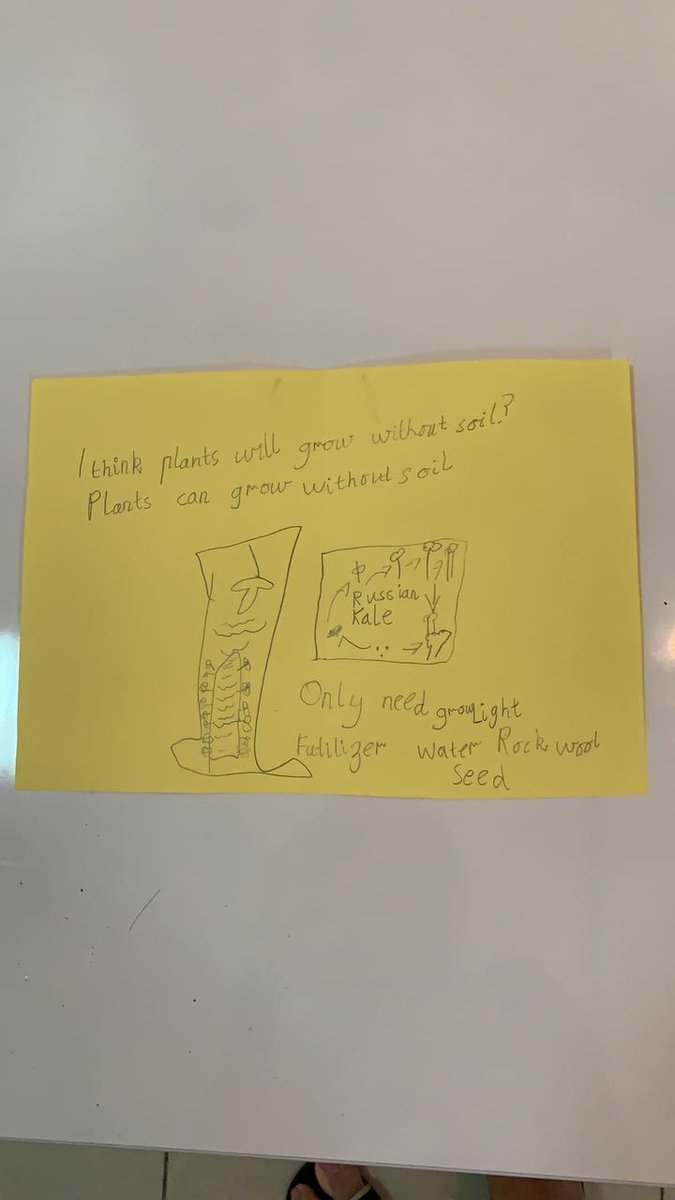 I think plants will grow without soil?
Plants can grow without soil
Russian
Kale
Only need growLight
Futilizer water Rock wool
Seed